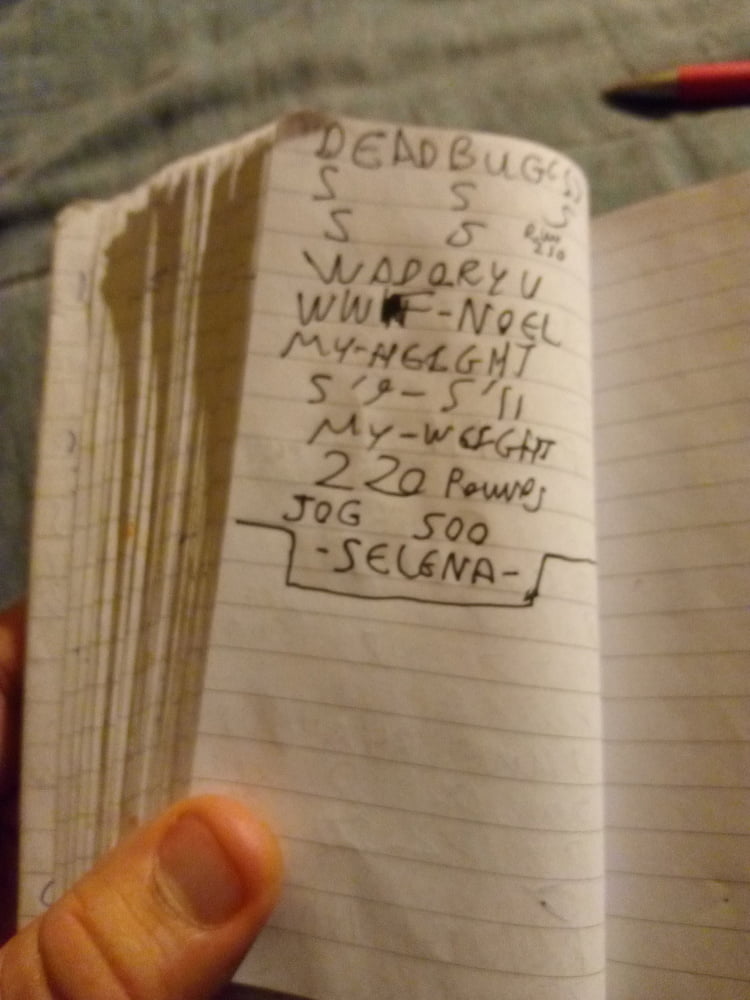 DEADBUG(S)
S S S
S S
WADORYU
WWF-NOEL
MY-HEIGHT
5'9-5'11
MY-WEIGHT
220 POUNDS
JOG 500
-SELENA-